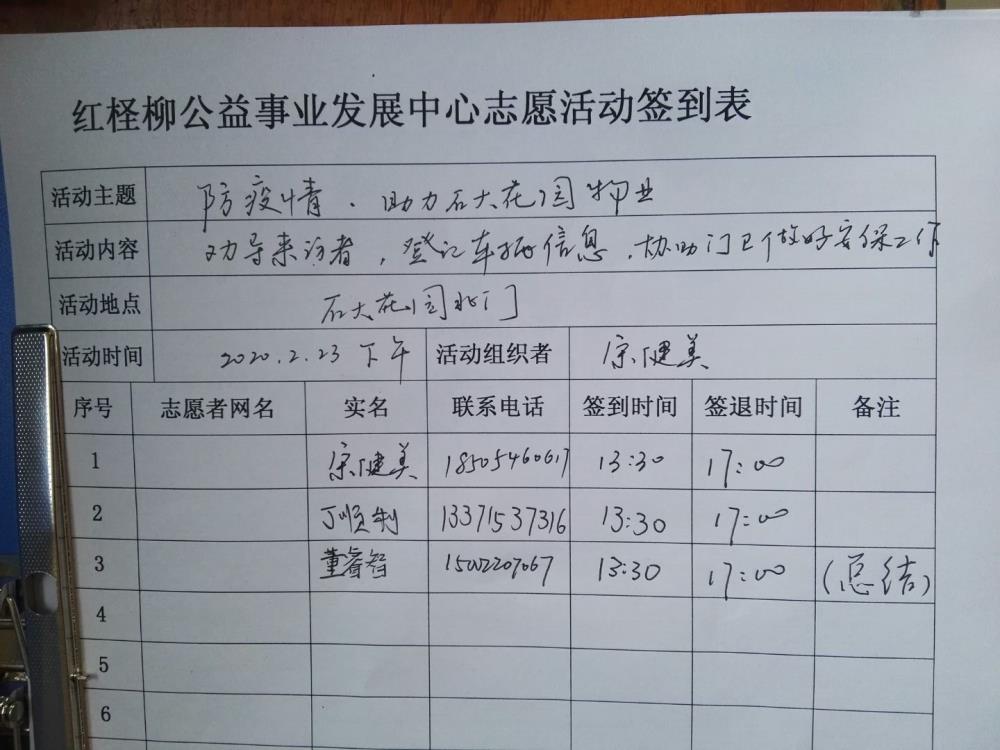 红柽柳公益事业发展中心志愿活动签到表
活动主题 防疫情．助力石大花园物业
活动内容 劝导来访者，登记车辆信息．协助门卫做好安保工作
活动地点 石大花园北门
活动时间 2020.2.23 下午 活动组织者 宗健美
序号 志愿者网名 实名 联系电话 签到时间 签退时间 备注
1 宗健美 18505460617 13:30 17:00
2 丁顺利 13371537316 13:30 17:00
3 董睿智 13:30 17:00 (总结)
4
5
6